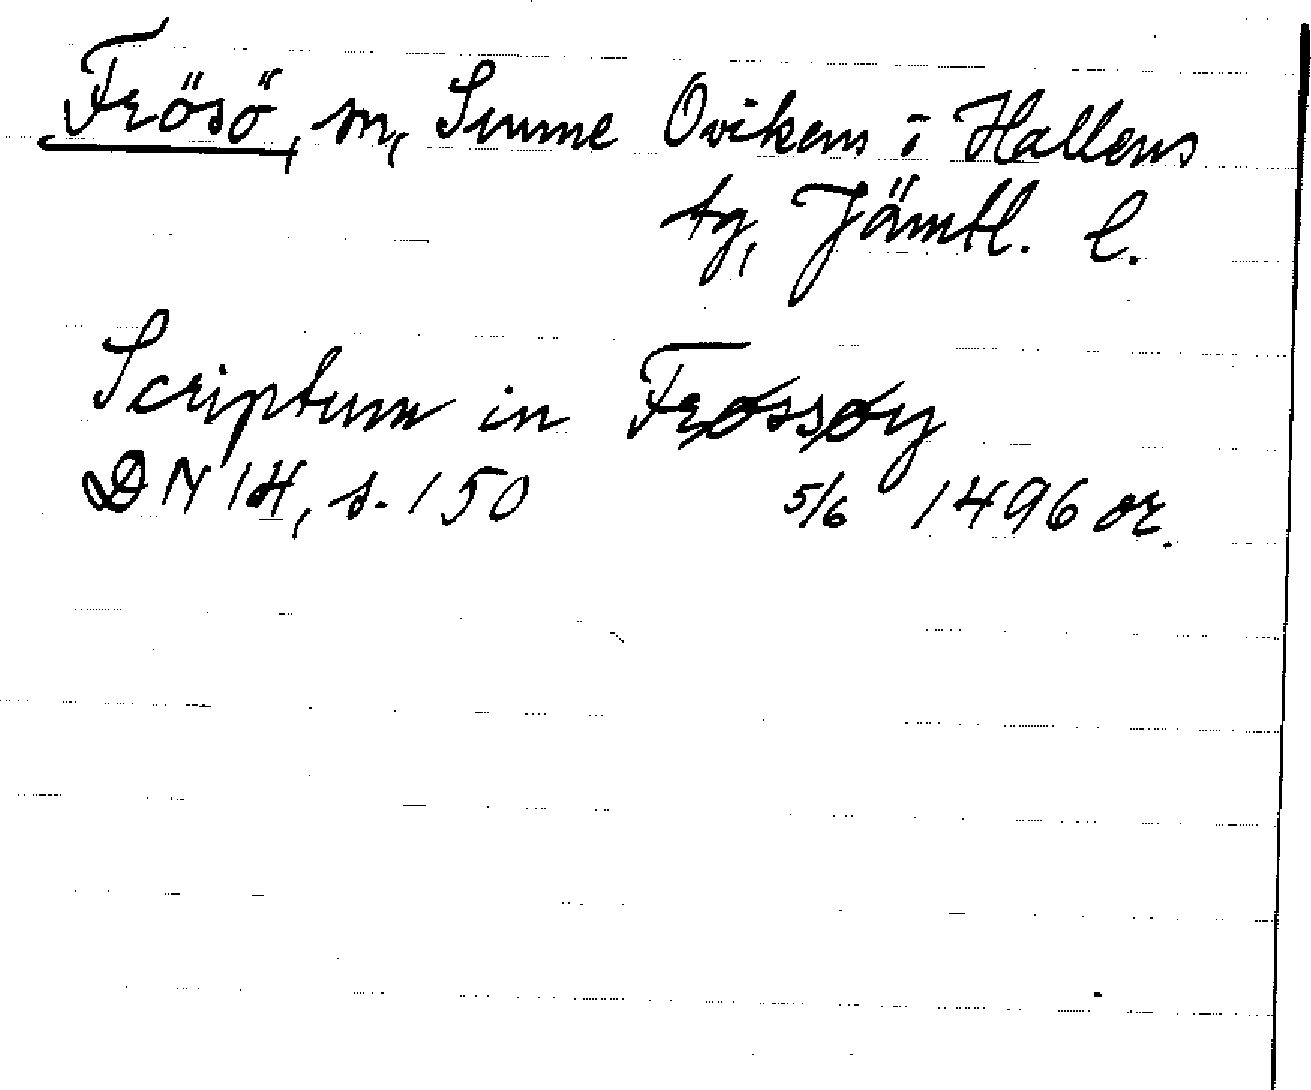 Frösö, sn, Sunne Ovikens i Hallens
tg, Jämtl. l.
Scriptum in Frøssøy
DN 14, s. 150 5/6 1496 or.